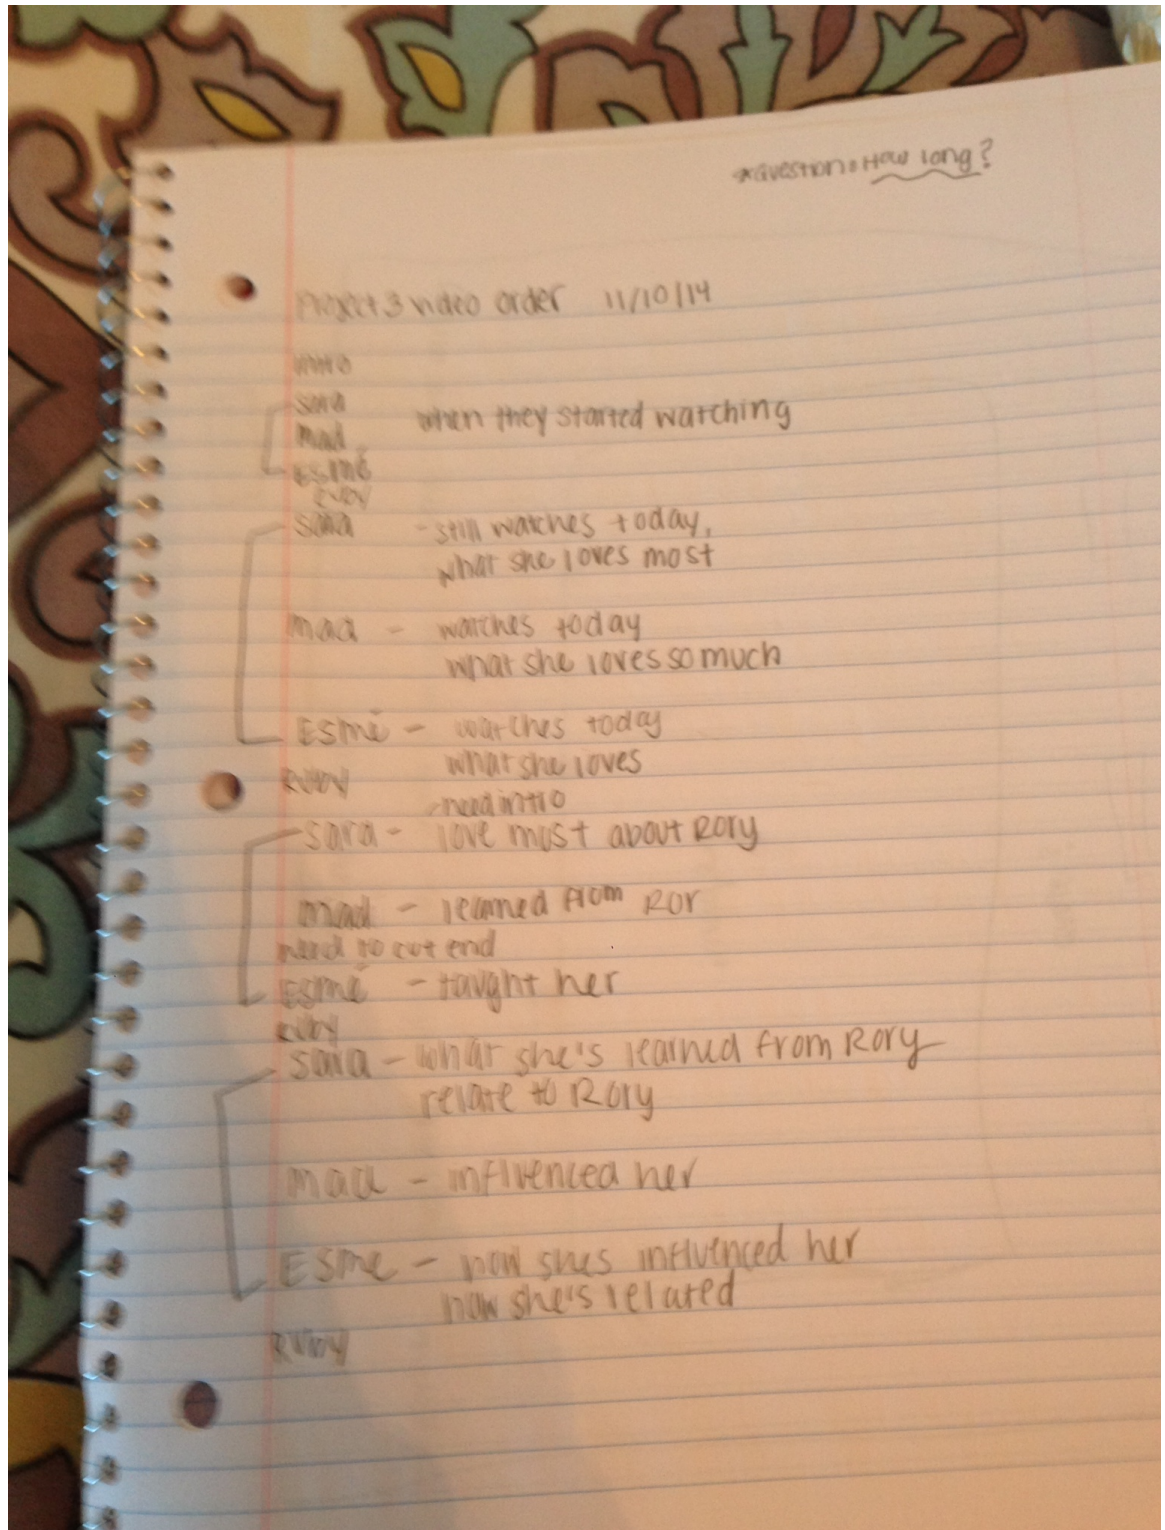 *Question: How long?
Project 3 video order 11/10/14
intro
sara
when they started watching
mad
Esmé
Ruby
sara - still watches today,
what she loves most
mad - watches today
what she loves so much
Esmé - watches today
what she loves
Ruby
-need intro
sara - love most about Rory
mad - learned from Ror
need to cut end
Esmé - taught her
Ruby
sara - what she's learned from Rory
relate to Rory
mad - influenced her
Esme - how shes influenced her
how she's related
Ruby